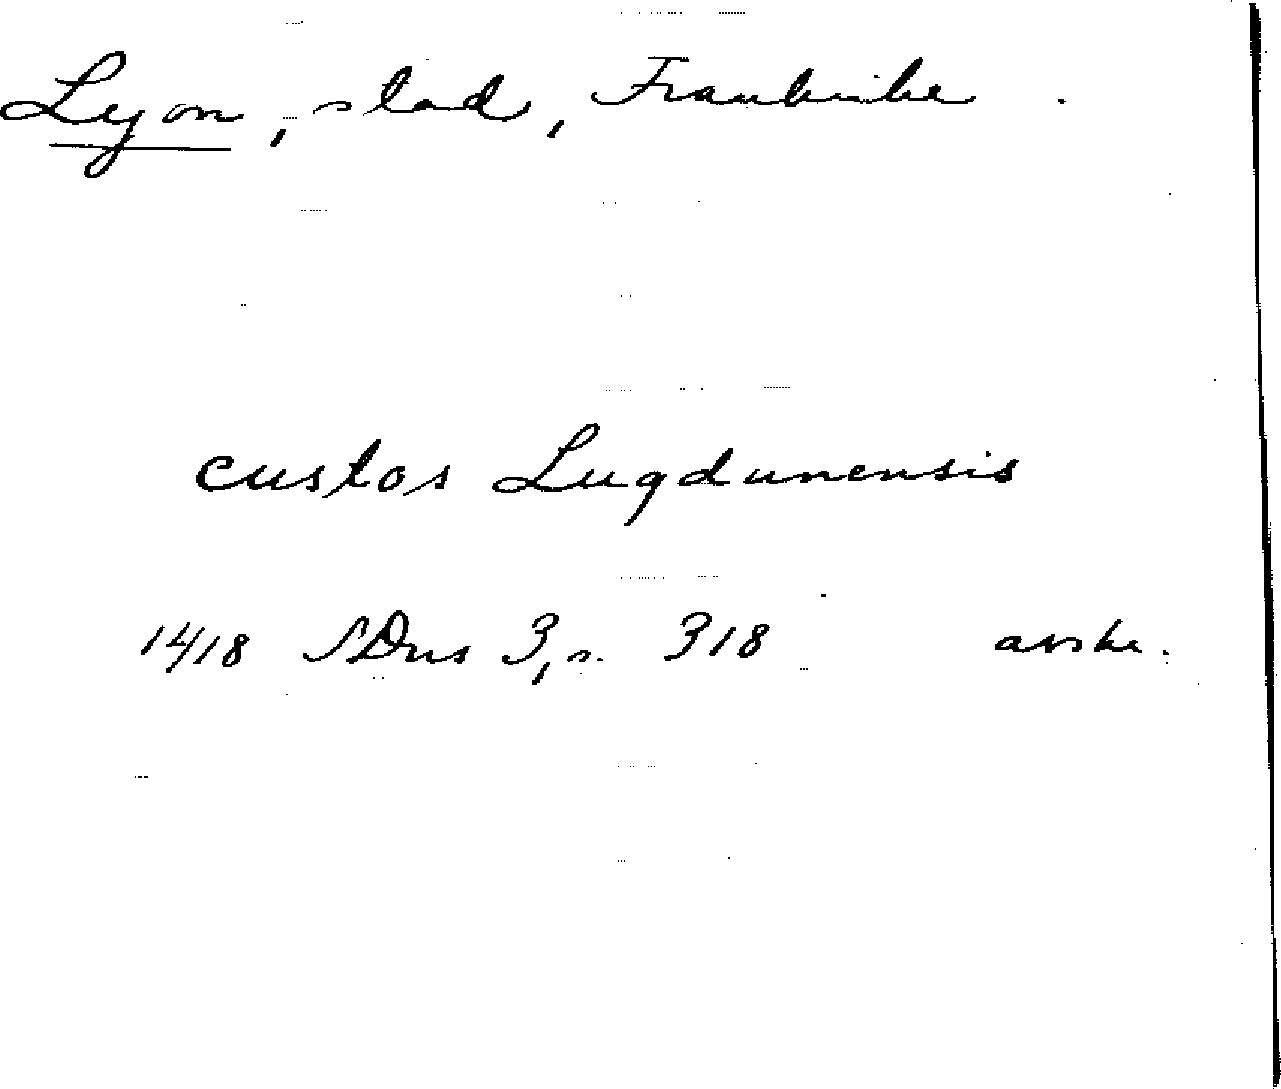 Lyon, stad, Frankrike
custos Lugdunensis
1418 SDns 3, s. 318 avskr.